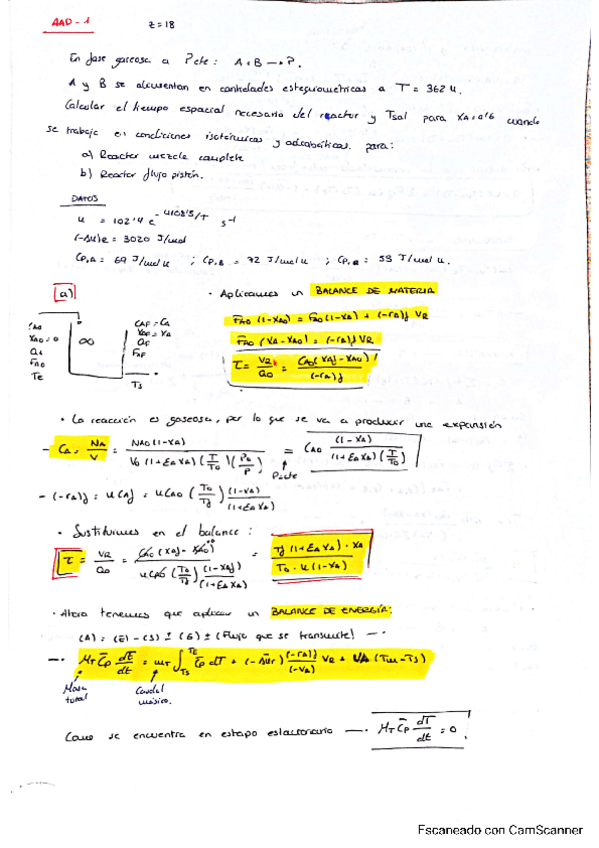 AAD-1
z=18
En fase gaseosa a P cte: A+B → P.
A y B se alimentan en cantidades estequiométricas a T = 362 K.
Calcular el tiempo espacial necesario del reactor y Tsal para XA=0'6 cuando
se trabaje en condiciones isotérmicas y adiabáticas. para:
a) Reactor mezcla completa
b) Reactor flujo pistón.
DATOS
k = 102'4 e^-4108'5/T s⁻¹
(-ΔH)R = 3020 J/mol
CP,A = 69 J/mol K ; CP,B = 72 J/mol K ; CP,R = 53 J/mol K.
a)
· Aplicamos un BALANCE DE MATERIA
CA0
XA0=0
Q0
FA0
Te
∞
CAF = CA
XAF = XA
QF
FAF
Ts
FA0 (1-XA0) = FA0(1-XA) + (-rA)f VR
FA0 (XA-XA0) = (-rA)f VR
τ = VR/Q0 = CA0(XAf-XA0)/(-rA)f
· La reacción es gaseosa, por lo que se va a producir una expansión
- CA = NA/V = NA0(1-XA) / V0 (1+εA XA)(T/T0)(P0/P) = CA0 (1-XA) / (1+εA XA)(T/T0)
P cte
- (-rA)f = k CAf = k CA0 (T0/Tf) (1-XA)/(1+εA XA)
· Sustituimos en el balance:
τ = VR/Q0 = CA0 (XAf - XA0) / k CA0 (T0/Tf) (1-XAf)/(1+εA XA) = Tf (1+εA XA) · XA / T0 · k (1-XA)
· Ahora tenemos que aplicar un BALANCE DE ENERGÍA:
(A) = (E) - (S) ± (G) ± (Flujo que se transmite) →
→ MT C̄p dE/dt = mT ∫_Ts^TE C̄p dT + (-ΔHr) (-rA)f/(-νA) VR + UA (Tm-Ts)
Masa total
Caudal másico.
Como se encuentra en estado estacionario → MT C̄p dT/dt = 0.
Escaneado con CamScanner